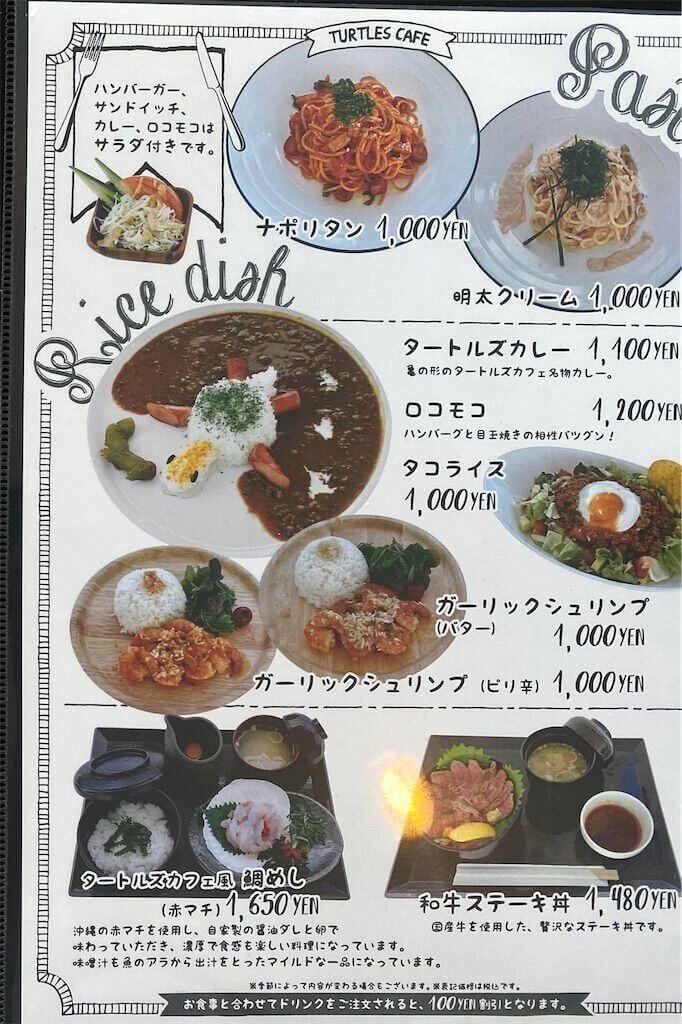 TURTLES CAFE
ハンバーガー、
サンドイッチ、
カレー、ロコモコは
サラダ付きです。
ナポリタン 1,000YEN
明太クリーム 1,000YEN
Rice dish
タートルズカレー 1,100YEN
亀の形のタートルズカフェ名物カレー。
ロコモコ 1,200YEN
ハンバーグと目玉焼きの相性バツグン!
タコライス
1,000YEN
ガーリックシュリンプ
(バター) 1,000YEN
ガーリックシュリンプ (ピリ辛) 1,000YEN
タートルズカフェ風 鯛めし
(赤マチ) 1,650YEN
沖縄の赤マチを使用し、自家製の醤油ダレと卵で
味わっていただき、濃厚で食感も楽しい料理になっています。
味噌汁も魚のアラから出汁をとったマイルドな一品になっています。
和牛ステーキ丼 1,480YEN
国産牛を使用した、贅沢なステーキ丼です。
※季節によって内容が変わる場合もございます。※表記価格は税込です。
お食事と合わせてドリンクをご注文されると、100YEN割引となります。